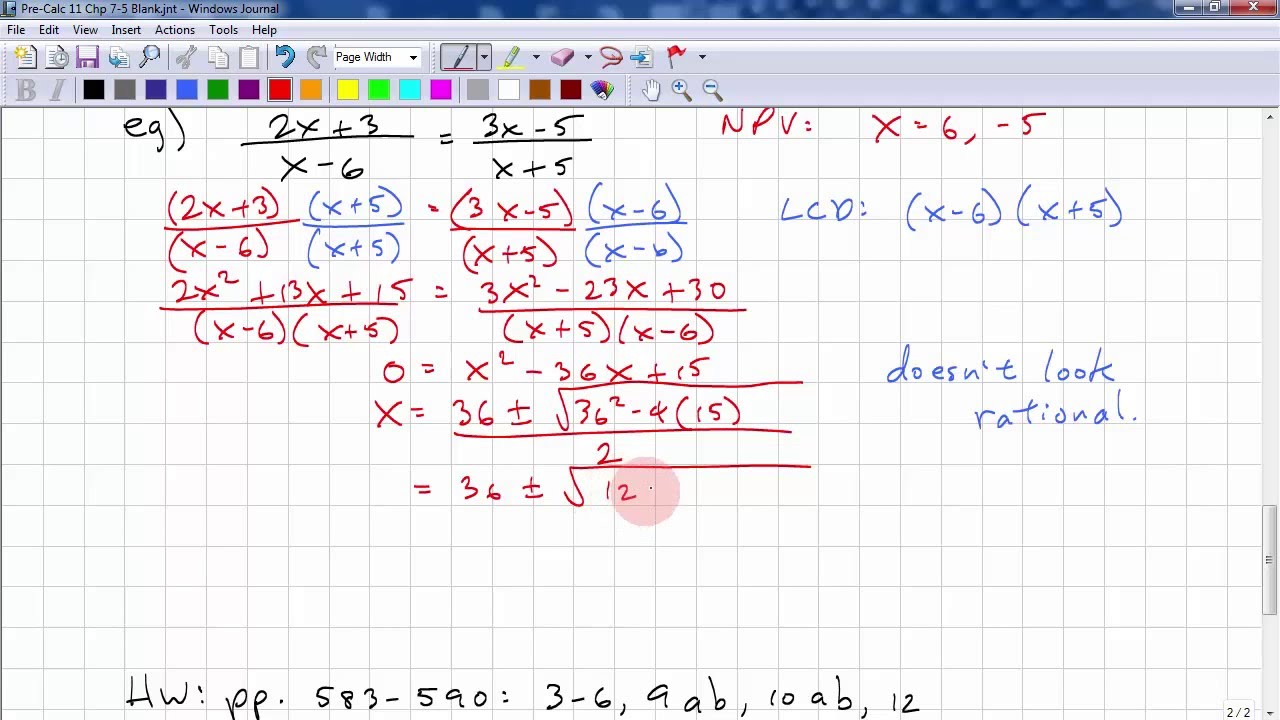 Pre-Calc 11 Chp 7-5 Blank.jnt - Windows Journal
File Edit View Insert Actions Tools Help
Page Width
B I
eg) (2x+3)/(x-6) = (3x-5)/(x+5) NPV: x = 6, -5
(2x+3)/(x-6) (x+5)/(x+5) = (3x-5)/(x+5) (x-6)/(x-6) LCD: (x-6)(x+5)
(2x² + 13x + 15)/((x-6)(x+5)) = (3x² - 23x + 30)/((x+5)(x-6))
0 = x² - 36x + 15 doesn't look
x = (36 ± √(36² - 4(15)))/2 rational.
= 36 ± √12
HW: pp. 583-590: 3-6, 9ab, 10ab, 12
2/2